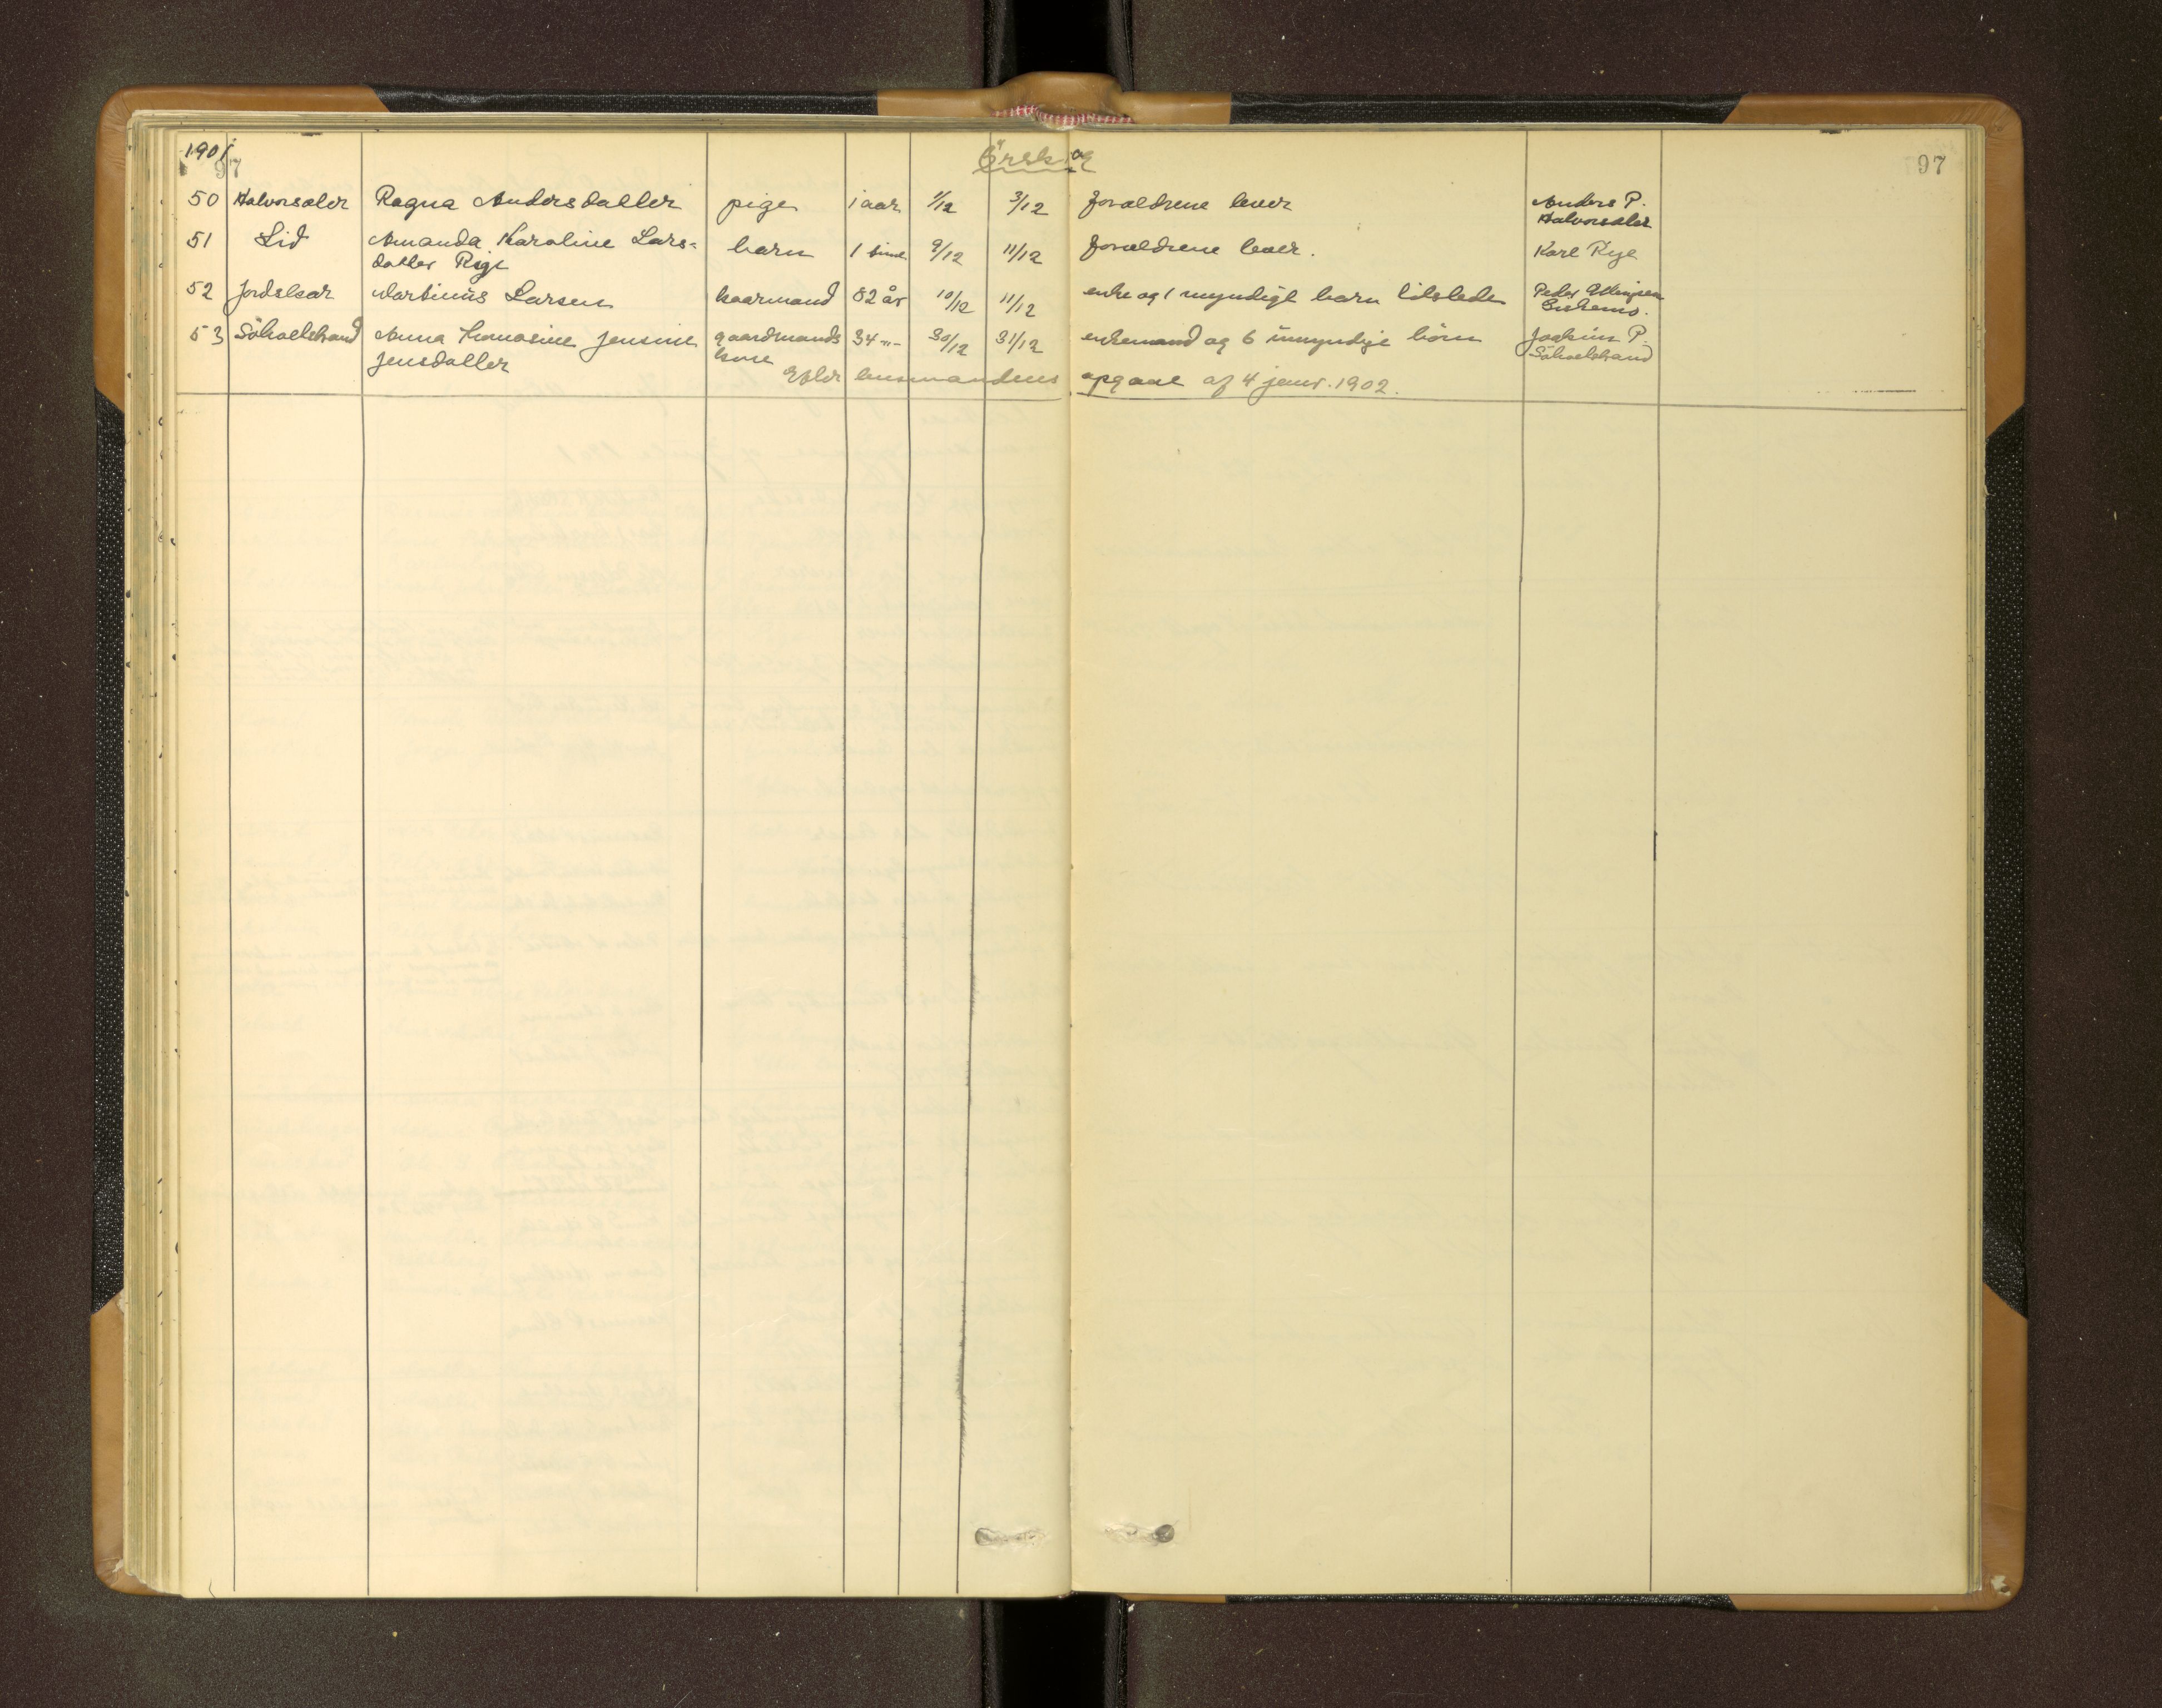 1901
97
Örskog
97
50 Halvorsæter Ragna Andersdatter pige 1 aar 1/12 3/12 forældrene lever Anders P.
Halvorsæter
51 Lid Amanda Karoline Lars=
datter Rye barn 1 time 9/12 11/12 forældrene lever. Karl Rye
52 Martinus Larsen kaarmand 82 år 10/12 11/12 enke og 1 myndigt barn tilstede Peder Ellingsen
53 Söholtstrand Anna Thomasine Jensine gaardmands 34 -"- 30/12 31/12 enkemand og 6 umyndige börn Joakim P.
Jensdatter kone Söholtstrand
Efter lensmandens opgave af 4 janr. 1902.